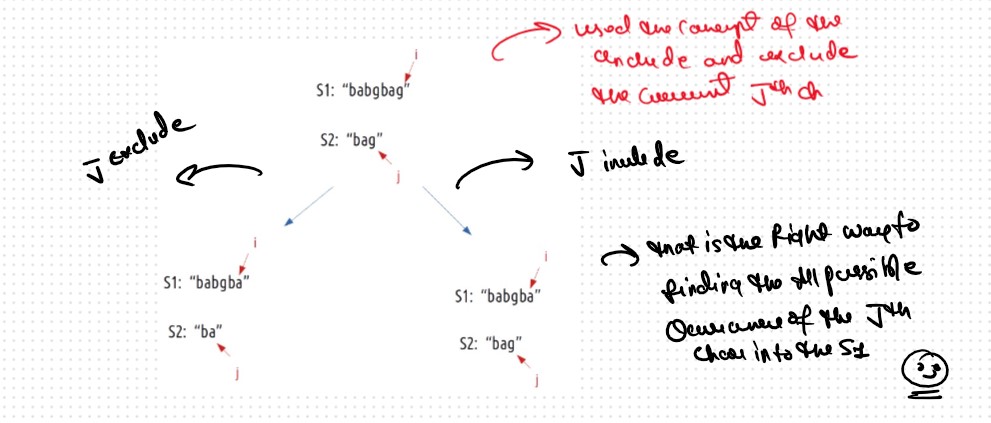 used the concept of the
include and exclude
the current Jth ch
i
S1: "babgbag"
S2: "bag"
j
J exclude
J inulede
i
S1: "babgba"
S2: "ba"
j
i
S1: "babgba"
S2: "bag"
j
that is the Right way to
finding the All possible
Occurance of the Jth
char into the S1